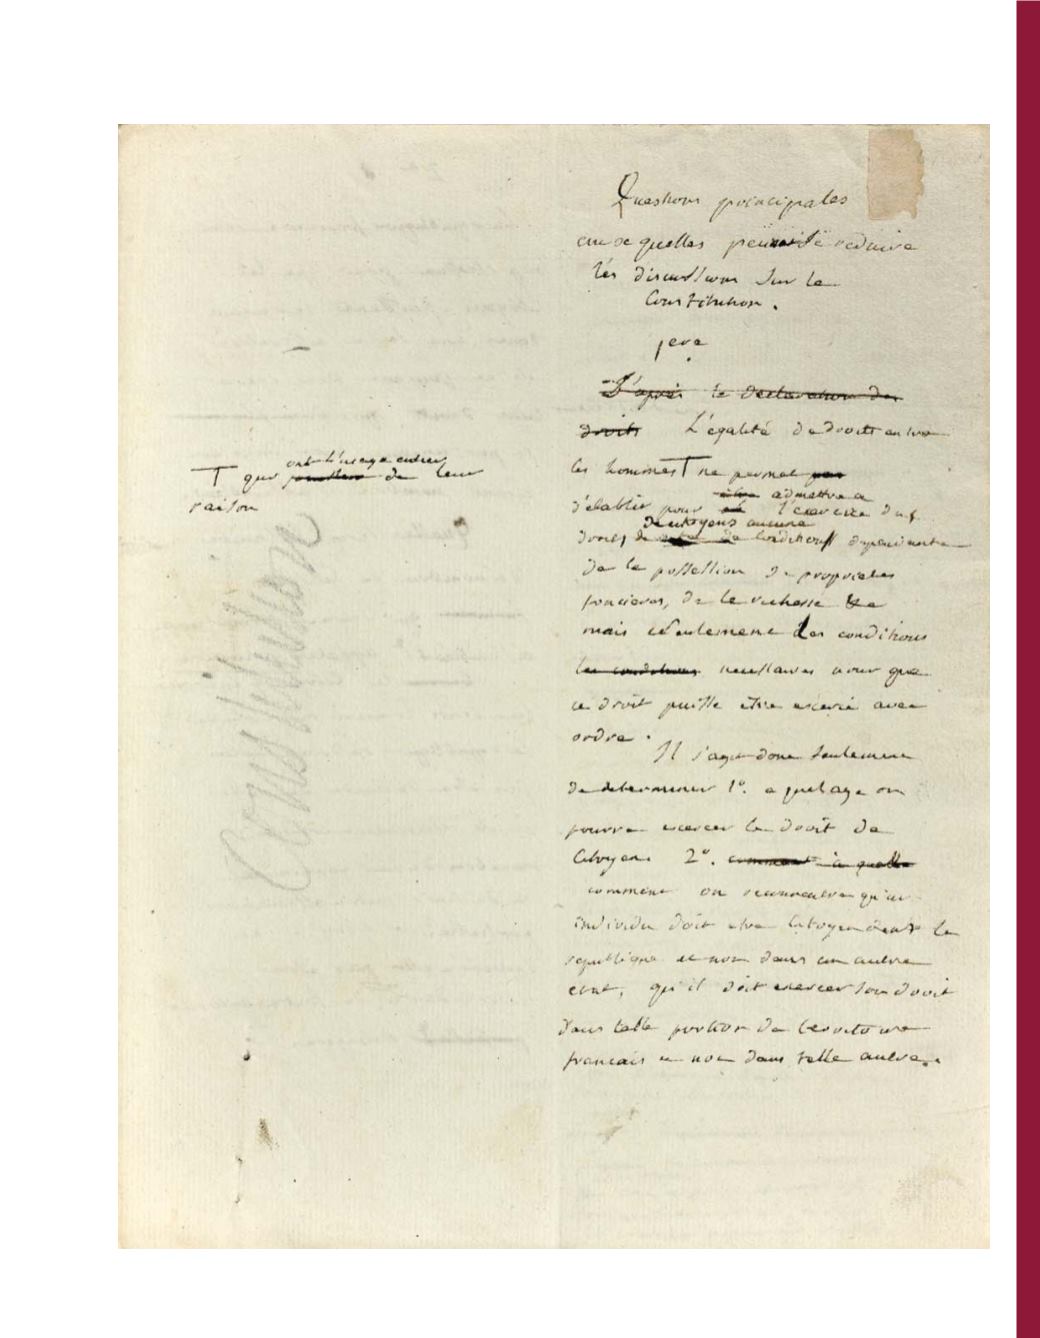 Questions principales
auxquelles peuvent se reduire
les discussions sur la
Constitution.
1ere
D'après la declaration des
droits L'égalité de droits entre
les hommes T ne permet pas
T que ont l'usage entier jouissent de leur
raison
être admettre a
d'etablir pour l'exercice des
de citoyens aucune
droits de conditions dependantes
de la possession de proprietes
foncieres, de la richesse &a
mais seulement les conditions
les conditions necessaires pour que
ce droit puisse etre exercé avec
ordre.
Il s'agit donc seulement
de determiner 1°. a quel age on
pourra exercer le droit de
Citoyen. 2°. comment à quelle
comment on reconnaitra qu'un
individu doit etre Citoyen dans la
republique et non dans un autre
etat, qu'il doit exercer son droit
dans telle portion de territoire
francais et non dans telle autre.
Constitution